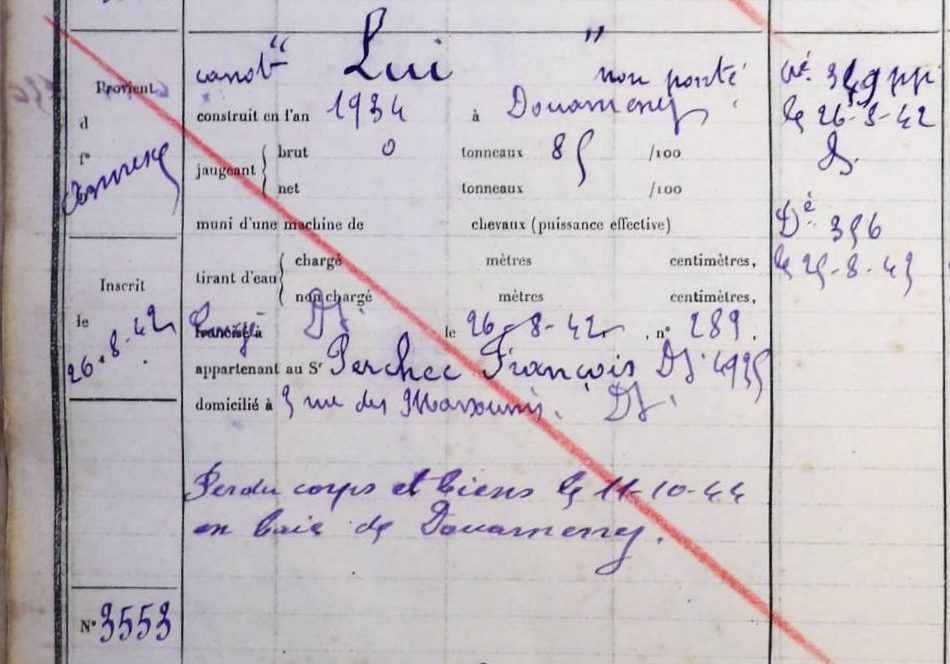 canot " Lui " non ponté
Provient
d
f°
construit en l'an 1934 à Douarnenez.
jaugeant { brut 0 tonneaux 85 /100
net tonneaux /100
muni d'une machine de chevaux (puissance effective)
tirant d'eau { chargé mètres centimètres,
non chargé mètres centimètres,
Inscrit
le
26.8.42
DZ le 26-8-42, n° 289.
appartenant au Sr Perchec François DZ. 4935
domicilié à 5 rue des DZ.
Perdu corps et biens le 11-10-44
en baie de Douarnenez.
N° 3553
349 pp.
le 26-8-42
Dé 356
le 25-8-43